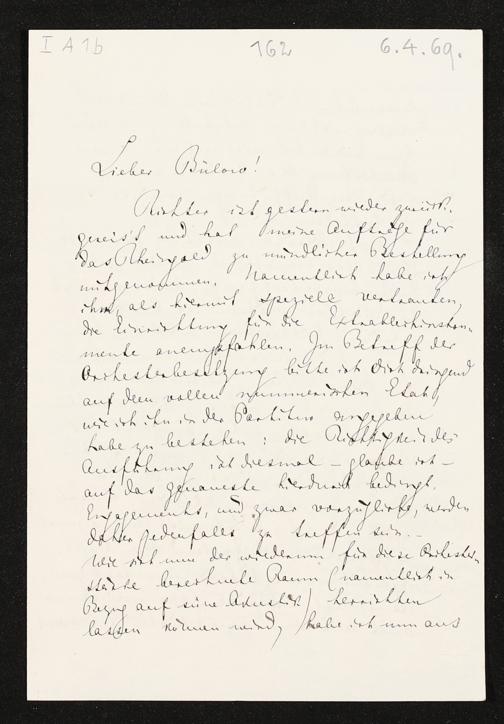 I A 1b 162 6.4.69.
Lieber Bülow!
Richter ist gestern wieder zurück-
gereis't und hat meine Aufträge für
das Rheingold zu mündlicher Bestellung
mitgenommen. Namentlich habe ich
ihm, als hiermit speziell vertrauten,
die Einrichtung für die
mente anempfohlen. Im Betreff der
Orchesterbesetzung bitte ich Dich dringend
auf dem vollen nummerischen Etat,
wie ich ihn in der Partitur angegeben
habe zu bestehen: die Richtigkeit der
Ausführung ist diesmal – glaube ich –
auf das genaueste hierdurch bedingt.
Engagements, und zwar vorzügliche, werden
daher jedenfalls zu treffen sein. –
Wie sich nun der wiederum für diese Orchester-
stärke berechnete Raum (namentlich in
Bezug auf seine Akustik) herrichten
lassen können wird, habe ich nun aus